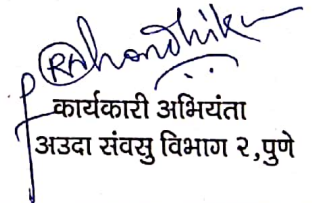 कार्यकारी अभियंता
अउदा संवसु विभाग २,पुणे